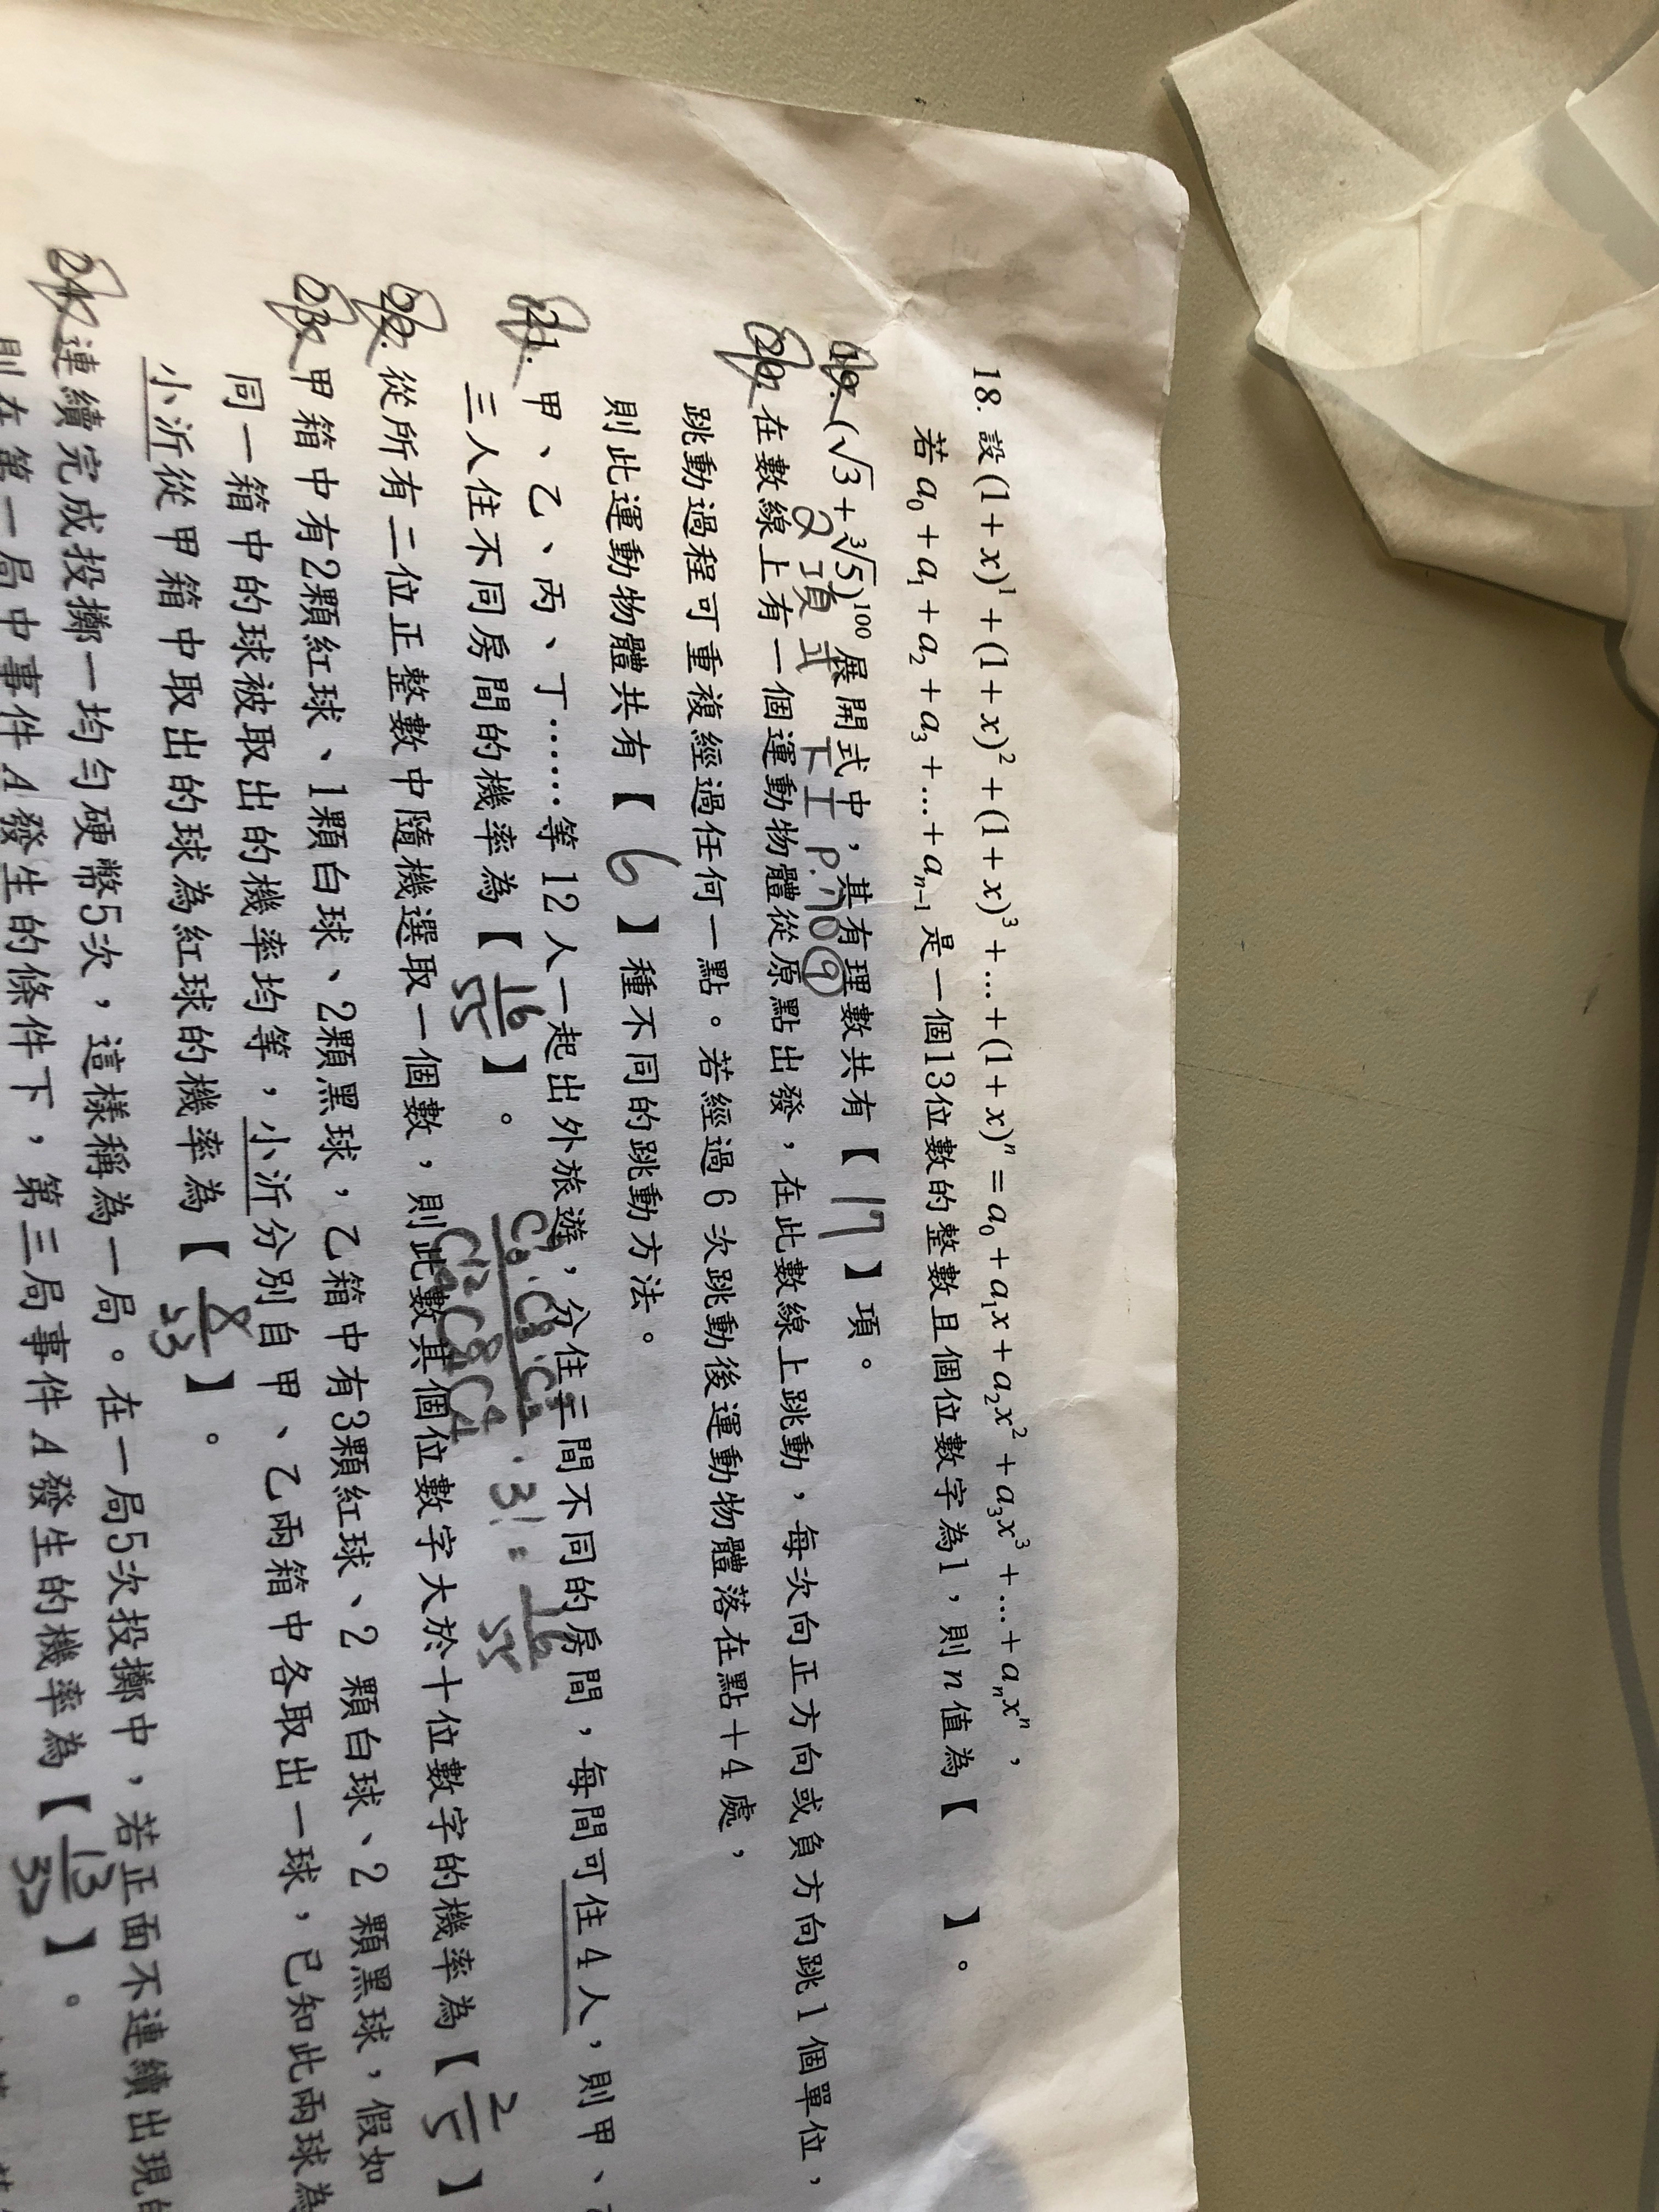 18. 設(1+x)¹+(1+x)²+(1+x)³+…+(1+x)ⁿ=a₀+a₁x+a₂x²+a₃x³+…+aₙxⁿ，
若a₀+a₁+a₂+a₃+…+aₙ₋₁是一個13位數的整數且個位數字為1，則n值為【 】。
19. (√3+∛5)¹⁰⁰展開式中，其有理數共有【17】項。
2項式 下工 P.170⑨
20. 在數線上有一個運動物體從原點出發，在此數線上跳動，每次向正方向或負方向跳1個單位，
跳動過程可重複經過任何一點。若經過6次跳動後運動物體落在點+4處，
則此運動物體共有【6】種不同的跳動方法。
21. 甲、乙、丙、丁……等12人一起出外旅遊，分住三間不同的房間，每間可住4人，則甲、
三人住不同房間的機率為【16/55】。
22. 從所有二位正整數中隨機選取一個數，則此數其個位數字大於十位數字的機率為【2/5】
23. 甲箱中有2顆紅球、1顆白球、2顆黑球，乙箱中有3顆紅球、2顆白球、2顆黑球，假如
同一箱中的球被取出的機率均等，小沂分別自甲、乙兩箱中各取出一球，已知此兩球為
小沂從甲箱中取出的球為紅球的機率為【8/23】。
24. 連續完成投擲一均勻硬幣5次，這樣稱為一局。在一局5次投擲中，若正面不連續出現的
則在第一局中事件A發生的條件下，第三局事件A發生的機率為【13/32】。